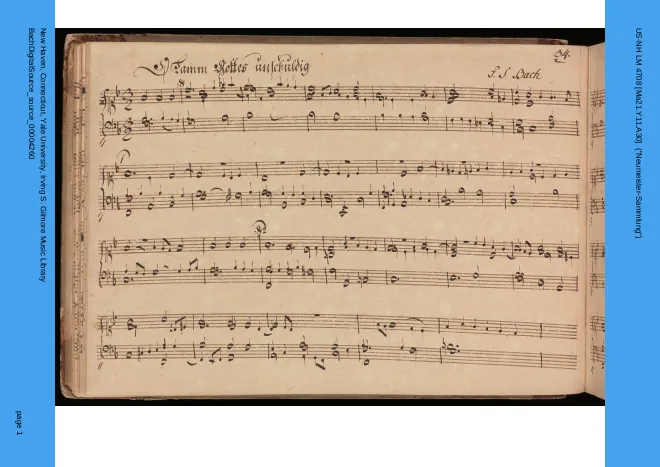 34.
O Lamm Gottes unschuldig
J. S. Bach
New Haven, Connecticut, Yale University, Irving S. Gilmore Music Library
BachDigitalSource_source_00004260
US-NH LM 4708 [Ma21.Y11.A30] ("Neumeister-Sammlung")
page 1